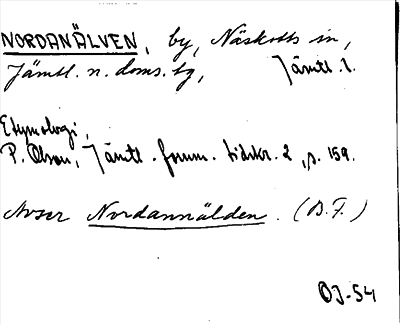 NORDANÄLVEN, by, Näskotts sn,
Jämtl. n. doms.tg, Jämtl. l.
Etymologi,
P. Olsson, Jämtl. fornm. tidskr. 2, s. 159.
Avser Nordannälden. (B.F.)
OJ-54